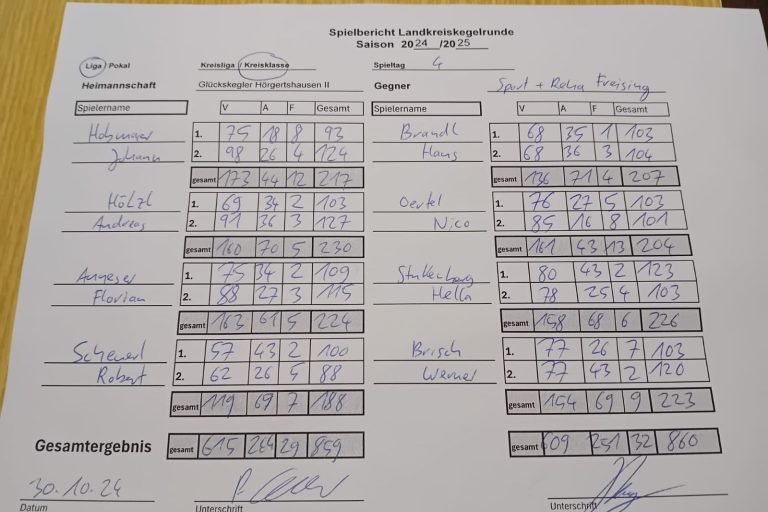 Spielbericht Landkreiskegelrunde
Saison 2024/2025
Liga / Pokal Kreisliga / Kreisklasse Spieltag 4
Heimannschaft Glückskegler Hörgertshausen II Gegner Sport + Reha Freising
Spielername V A F Gesamt Spielername V A F Gesamt
1. 75 18 8 93 Brandl 1. 68 35 1 103
Johann 2. 98 26 4 124 Hans 2. 68 36 3 104
gesamt 173 44 12 217 gesamt 136 71 4 207
Hölzl 1. 69 34 2 103 Oertel 1. 76 27 5 103
Andreas 2. 91 36 3 127 Nico 2. 85 16 8 101
gesamt 160 70 5 230 gesamt 161 43 13 204
1. 75 34 2 109 1. 80 43 2 123
Florian 2. 88 27 3 115 Hella 2. 78 25 4 103
gesamt 163 61 5 224 gesamt 158 68 6 226
Scheuerl 1. 57 43 2 100 Brisch 1. 77 26 7 103
Robert 2. 62 26 5 88 Werner 2. 77 43 2 120
gesamt 119 69 7 188 gesamt 154 69 9 223
Gesamtergebnis gesamt 615 244 29 859 gesamt 609 251 32 860
30.10.24
Datum Unterschrift Unterschrift